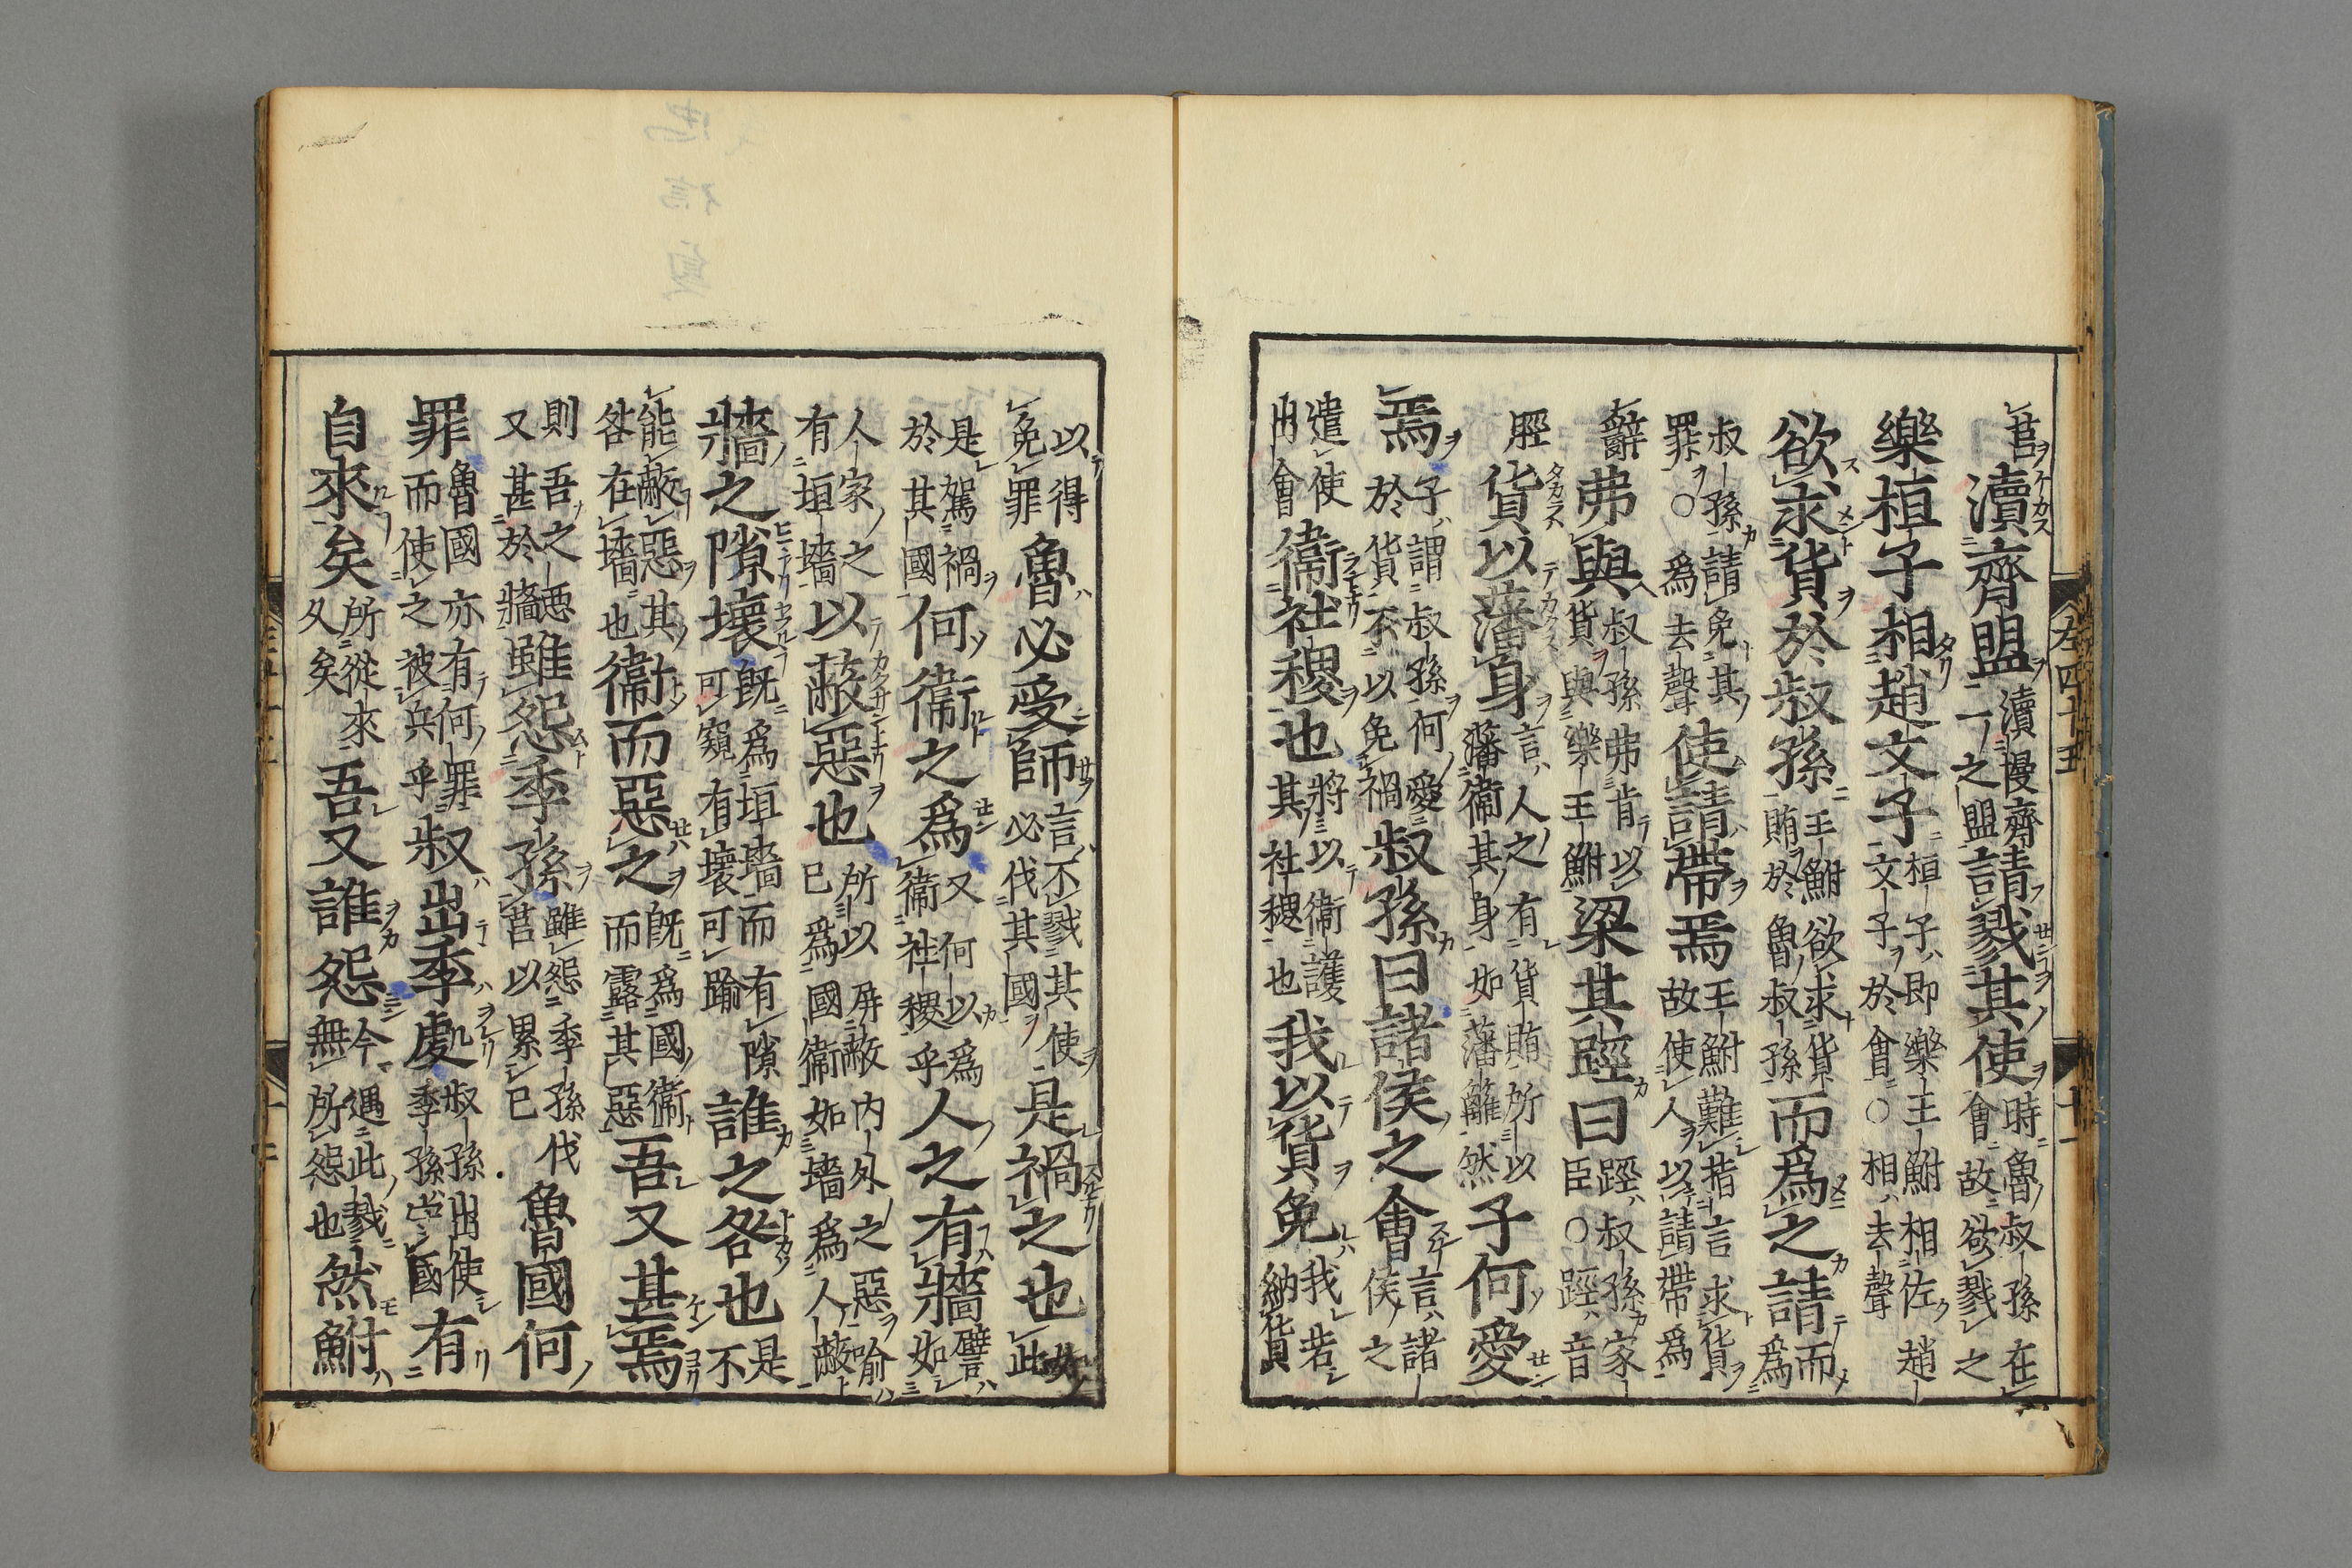 莒瀆齊盟瀆慢齊一之盟請戮其使時魯叔孫在會故欲戮之
樂桓子相趙文子桓子即樂王鮒相佐趙文子於會○相去聲
欲求貨於叔孫王鮒欲求貨賄於魯叔孫而爲之請而爲
叔孫請免其罪○爲去聲使請帶焉王鮒難指言求貨故使人以請帶爲
辭弗與叔孫弗肯以貨與樂王鮒梁其踁曰踁叔孫家臣○踁音
脛貨以藩身言人之有貨賄所以藩衛其身如藩籬然子何愛
焉子謂叔孫何愛於貨不以免禍叔孫曰諸侯之會言諸侯之
遣使出會衛社稷也將以衛護其社稷也我以貨免我若納貨
左四十五
十一
以得免罪魯必受師言不戮其使必伐其國是禍之也如此
是駕禍於其國何衛之爲又何以爲衛社稷乎人之有牆譬如
人家之有垣墻以蔽惡也所以屏蔽内外之惡喻已爲國衛如墻爲人蔽
牆之隙壞既爲垣墻而有隙可窺有壞可踰誰之咎也是不
能蔽惡其咎在墻也衛而惡之既爲國衛而露其惡吾又甚焉
則吾之惡又甚於牆雖怨季孫雖怨季孫伐莒以累已魯國何
罪魯國亦有何罪而使之被兵乎叔出季處叔孫出使季孫守國有
自來矣所從來久矣吾又誰怨今遇此戮無所怨也然鮒